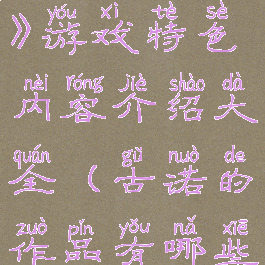 yóu xì tè sè
》游戏特色
nèi róng jiè shào dà
内容介绍大
quán gǔ nuò de
全（古诺的
zuò pǐn yǒu nǎ xiē
作品有哪些